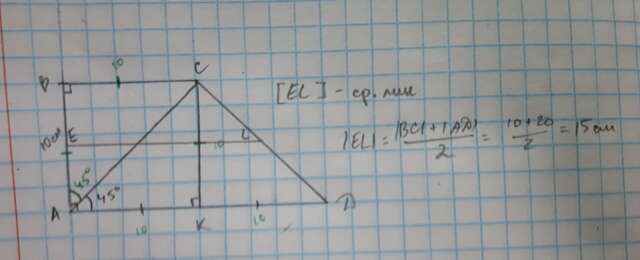 10
B
C
[EL] - ср. лин
10 см
E
10
L
|EL| = |BC| + |AD| / 2 = 10 + 20 / 2 = 15 см
45°
45°
A
10
K
10
D